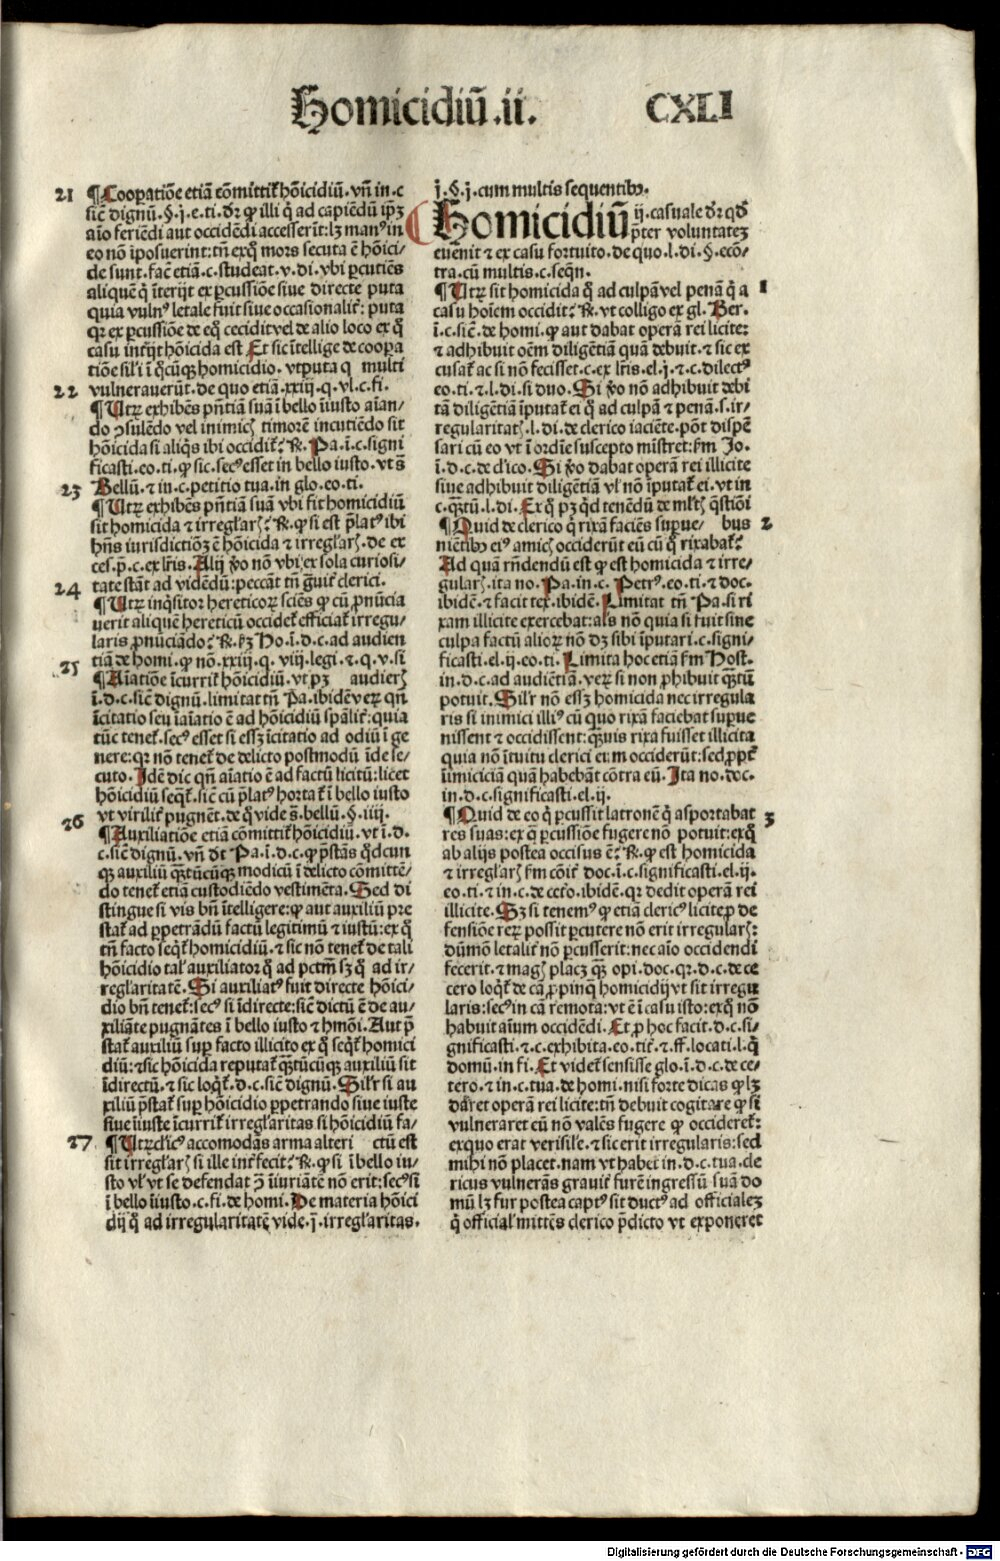 Homicidiū .ii. CXLI
21 ¶ Coopatiōe etiā cōmittit᷑ hōicidiū. vn̄ in. c
sic̄ dignū. §. j. e. ti. dr̄ ꝙ illi q̄ ad capiēdū ip̄ꝫ
aīo feriēdi aut occidēdi accesserīt: lꝫ manꝰ in
eo nō īposuerint: tn̄ exq̄ mors secuta ē hōici/
de sunt. fac̄ etiā. c. studeat. v. di. vbi ꝑcutiēs
aliquē q̄ īterijt ex ꝑcussiōe siue directe puta
quia vulnꝰ letale fuit siue occasionalit᷑: puta
qꝛ ex ꝑcussiōe de eq̄ cecidit vel de alio loco ex q̄
casu int᷑ijt hōicida est. Et sic ītellige de coopa
tiōe sil'i ī q̄cūqꝫ homicidio. vtputa q multi
22 vulnerauerūt. de quo etiā. xxiij. q. vl. c. fi.
¶ Utꝝ exhibēs pn̄tiā suā ī bello īiusto aīan/
do ꝯsulēdo vel inimicꝭ timorē incutiēdo sit
hōicida si aliq̄s ibi occidit᷑: R̄. Pa. ī. c. signi
ficasti. eo. ti. ꝙ sic. secꝰ esset in bello iusto. vt s̄
23 Bellū. ⁊ in. c. petitio tua. in glo. eo. ti.
¶ Utꝝ exhibēs pn̄tiā suā vbi fit homicidiū
sit homicida ⁊ irregl'arꝭ: R̄. ꝙ si est p̄latꝰ ibi
hn̄s iurisdictiōꝫ ē hōicida ⁊ irregl'arꝭ. de ex
ces. p̄. c. ex lr̄is. Alij ꝟo nō vbi ex sola curiosi/
24 tate stāt ad vidēdū: peccāt tn̄ gᷓuit᷑ clerici.
¶ Utꝝ inq̄sitor hereticoꝝ sciēs ꝙ cū ꝓnūcia
uerit aliquē hereticū occidet᷑ efficiat᷑ irregu/
laris ꝓnūciādo: R̄. fꝫ Ho. ī. d. c. ad audien
tiā de homi. ꝙ nō. xxiij. q. viij. legi. ⁊. q. v. si
25 ¶ Aīatiōe īcurrit᷑ hōicidiū. vt pꝫ audierꝭ
ī. d. c. sic̄ dignū. limitat tn̄ Pa. ibidē veꝝ qn̄
īcitatio seu īaīatio ē ad hōicidiū sp̄alit᷑: quia
tūc tenet᷑. secꝰ esset si essꝫ īcitatio ad odiū ī ge
nere: qꝛ nō tenet᷑ de delicto postmodū īde se/
cuto. Idē dic qn̄ aīatio ē ad factū licitū: licet
hōicidiū seq̄t᷑. sic̄ cū p̄latꝰ hortat᷑ ī bello iusto
vt virilit᷑ pugnēt. de q̄ vide s̄. bellū. §. iiij.
26 ¶ Auxiliatiōe etiā cōmittit᷑ hōicidiū. vt ī. d.
c. sic̄ dignū. vn̄ dt̄ Pa. ī. d. c. ꝙ p̄stās q̄dcun
qꝫ auxiliū q̄ꝫtūcūqꝫ modicū ī delicto cōmittē/
do tenet᷑ etiā custodiēdo vestimēta. Sed di
stingue si vis bn̄ ītelligere: ꝙ aut auxiliū pre
stat᷑ ad ꝑpetrādū factū legitimū ⁊ iustū: ex q̄
tn̄ facto seq̄t᷑ homicidiū. ⁊ sic nō tenet᷑ de tali
hōicidio tal' auxiliator q̄ ad pctm̄ sꝫ q̄ ad ir/
regl'aritatē. Si auxiliatꝰ fuit directe hōici/
dio bn̄ tenet᷑: secꝰ si īdirecte: sic̄ dictū ē de au/
xiliāte pugnātes ī bello iusto ⁊ hmōi. Aut p̄
stat᷑ auxiliū suꝑ facto illicito ex q̄ seq̄t᷑ homici
diū: ⁊ sic hōicida reputat᷑ q̄ꝫtūcūqꝫ auxiliū sit
īdirectū. ⁊ sic loq̄t᷑. d. c. sic̄ dignū. Sil'r si au
xiliū p̄stat᷑ suꝑ hōicidio ꝑpetrando siue iuste
siue īiuste īcurrit᷑ irregl'aritas si hōicidiū fa/
27 ¶ Utꝝ cl'icꝰ accomodās arma alteri ctū est
sit irregl'arꝭ si ille int᷑fecit: R̄. ꝙ si ī bello iu/
sto vl' vt se defendat ꝓ īiuriātē nō erit: secꝰ si
ī bello īiusto. c. fi. de homi. De materia hōici
dij q̄ ad irregularitatē vide. j̄. irregl'aritas.
j̄. §. j. cum multis sequentibꝰ.
Homicidiū ij. casuale dr̄ qd̄
p̄ter voluntateꝫ
euenit ⁊ ex casu fortuito. de quo. l. di. §. ecō/
tra. cū multis. c. seqn̄.
¶ Utꝝ sit homicida q̄ ad culpā vel penā q̄ a 1
casu hoīem occidit: R̄. vt colligo ex gl. Ber.
ī. c. sic̄. de homi. ꝙ aut dabat operā rei licite:
⁊ adhibuit oēm diligētiā quā debuit. ⁊ sic ex
cusat᷑ ac si nō fecisset. c. ex lr̄is. el. j. ⁊. c. dilectꝰ
eo. ti. ⁊. l. di. si duo. Si ꝟo nō adhibuit debi
tā diligētiā īputat᷑ ei q̄ ad culpā ⁊ penā. s. ir/
regularitatꝭ. l. di. de clerico iaciēte. pōt dispē
sari cū eo vt ī ordīe suscepto mīstret: fm̄ Jo.
ī. d. c. de cl'ico. Si ꝟo dabat operā rei illicite
siue adhibuit diligētiā vl' nō īputat᷑ ei. vt in
c. q̄ꝫtū. l. di. Ex q̄ pꝫ qd̄ tenēdū de ml'tꝭ q̄stiōi
¶ Quid de clerico q̄ rixā faciēs suꝑue/ bus 2
niētibꝰ eiꝰ amicꝭ occiderūt eū cū q̄ rixabat᷑:
Ad quā rn̄dendū est ꝙ est homicida ⁊ irre/
gularꝭ. ita no. Pa. in. c. Petrꝰ. eo. ti. ⁊ doc.
ibidē. ⁊ facit tex. ibidē. Limitat tn̄ Pa. si ri
xam illicite exercebat: al's nō quia si fuit sine
culpa factū alioꝝ nō dꝫ sibi īputari. c. signi/
ficasti. el. ij. eo. ti. Limita hoc etiā fm̄ Host.
in. d. c. ad audiētiā. veꝝ si non ꝓhibuit q̄ꝫtū
potuit. Sil'r nō essꝫ homicida nec irregula
ris si inimici illiꝰ cū quo rixā faciebat suꝑue
nissent ⁊ occidissent: q̄ꝫuis rixa fuisset illicita
quia nō ītuitu clerici eum occiderūt: sed ꝓpt᷑
īimiciciā quā habebāt cōtra eū. Ita no. doc.
in. d. c. significasti. el. ij.
¶ Quid de eo q̄ ꝑcussit latronē q̄ asportabat 3
res suas: ex q̄ ꝑcussiōe fugere nō potuit: exq̄
ab alijs postea occisus ē: R̄. ꝙ est homicida
⁊ irregl'arꝭ fm̄ cōit᷑ doc. ī. c. significasti. el. ij.
eo. ti. ⁊ in. c. de cet᷑o. ibidē. qꝛ dedit operā rei
illicite. Sꝫ si tenemꝰ ꝙ etiā clericꝰ licite ꝓ de
fensiōe reꝝ possit ꝑcutere nō erit irregularꝭ:
dūmō letalit᷑ nō ꝑcusserit: nec aīo occidendi
fecerit. ⁊ magꝭ placꝫ q̄ꝫ opi. doc. qꝛ. d. c. de ce
cero loq̄t᷑ de cā ꝓpinq̄ homicidij vt sit irregu
laris: secꝰ in cā remota: vt ē ī casu isto: exq̄ nō
habuit aīum occidēdi. Et ꝓ hoc facit. d. c. si/
gnificasti. ⁊. c. exhibita. eo. tit᷑. ⁊. ff. locati. l. q̄
domū. in fi. Et videt᷑ sensisse glo. ī. d. c. de ce/
tero. ⁊ in. c. tua. de homi. nisi forte dicas ꝙ lꝫ
daret operā rei licite: tn̄ debuit cogitare ꝙ si
vulneraret eū nō valēs fugere ꝙ occideret᷑:
exquo erat verisil'e. ⁊ sic erit irregularis: sed
mihi nō placet. nam vt habet᷑ in. d. c. tua. cle
ricus vulnerās grauit᷑ furē ingressū suā do
mū lꝫ fur postea captꝰ sit ductꝰ ad officialeꝫ
q̄ official' mittēs clerico p̄dicto vt exponeret
Digitalisierung gefördert durch die Deutsche Forschungsgemeinschaft - DFG